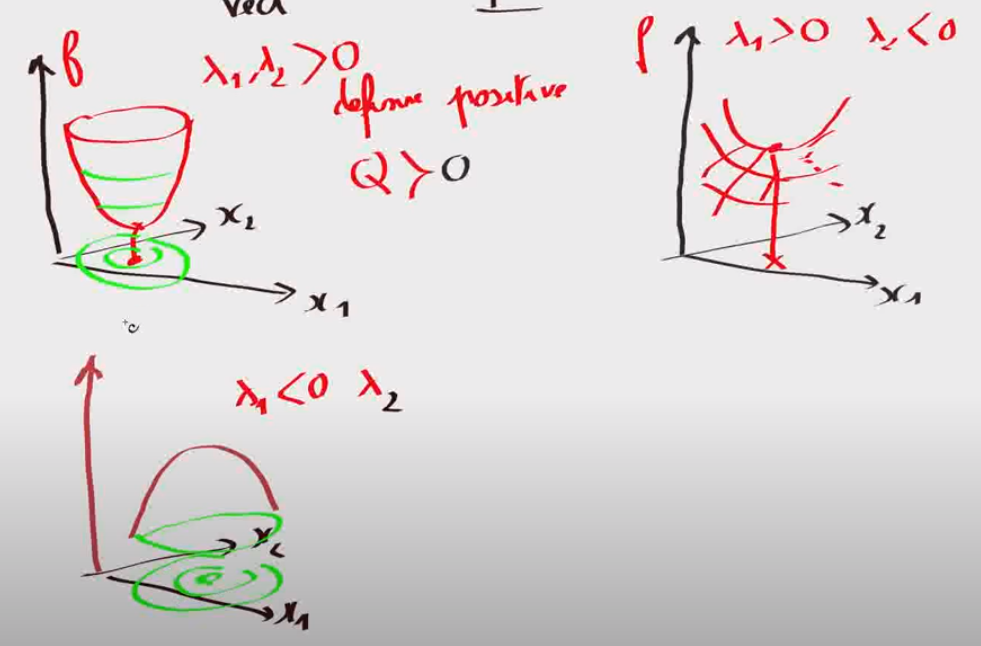 f
λ₁, λ₂ > 0
define positive
Q ≻ 0
x₂
x₁
f
λ₁ > 0 λ₂ < 0
x₂
x₁
λ₁ < 0 λ₂
x₂
x₁